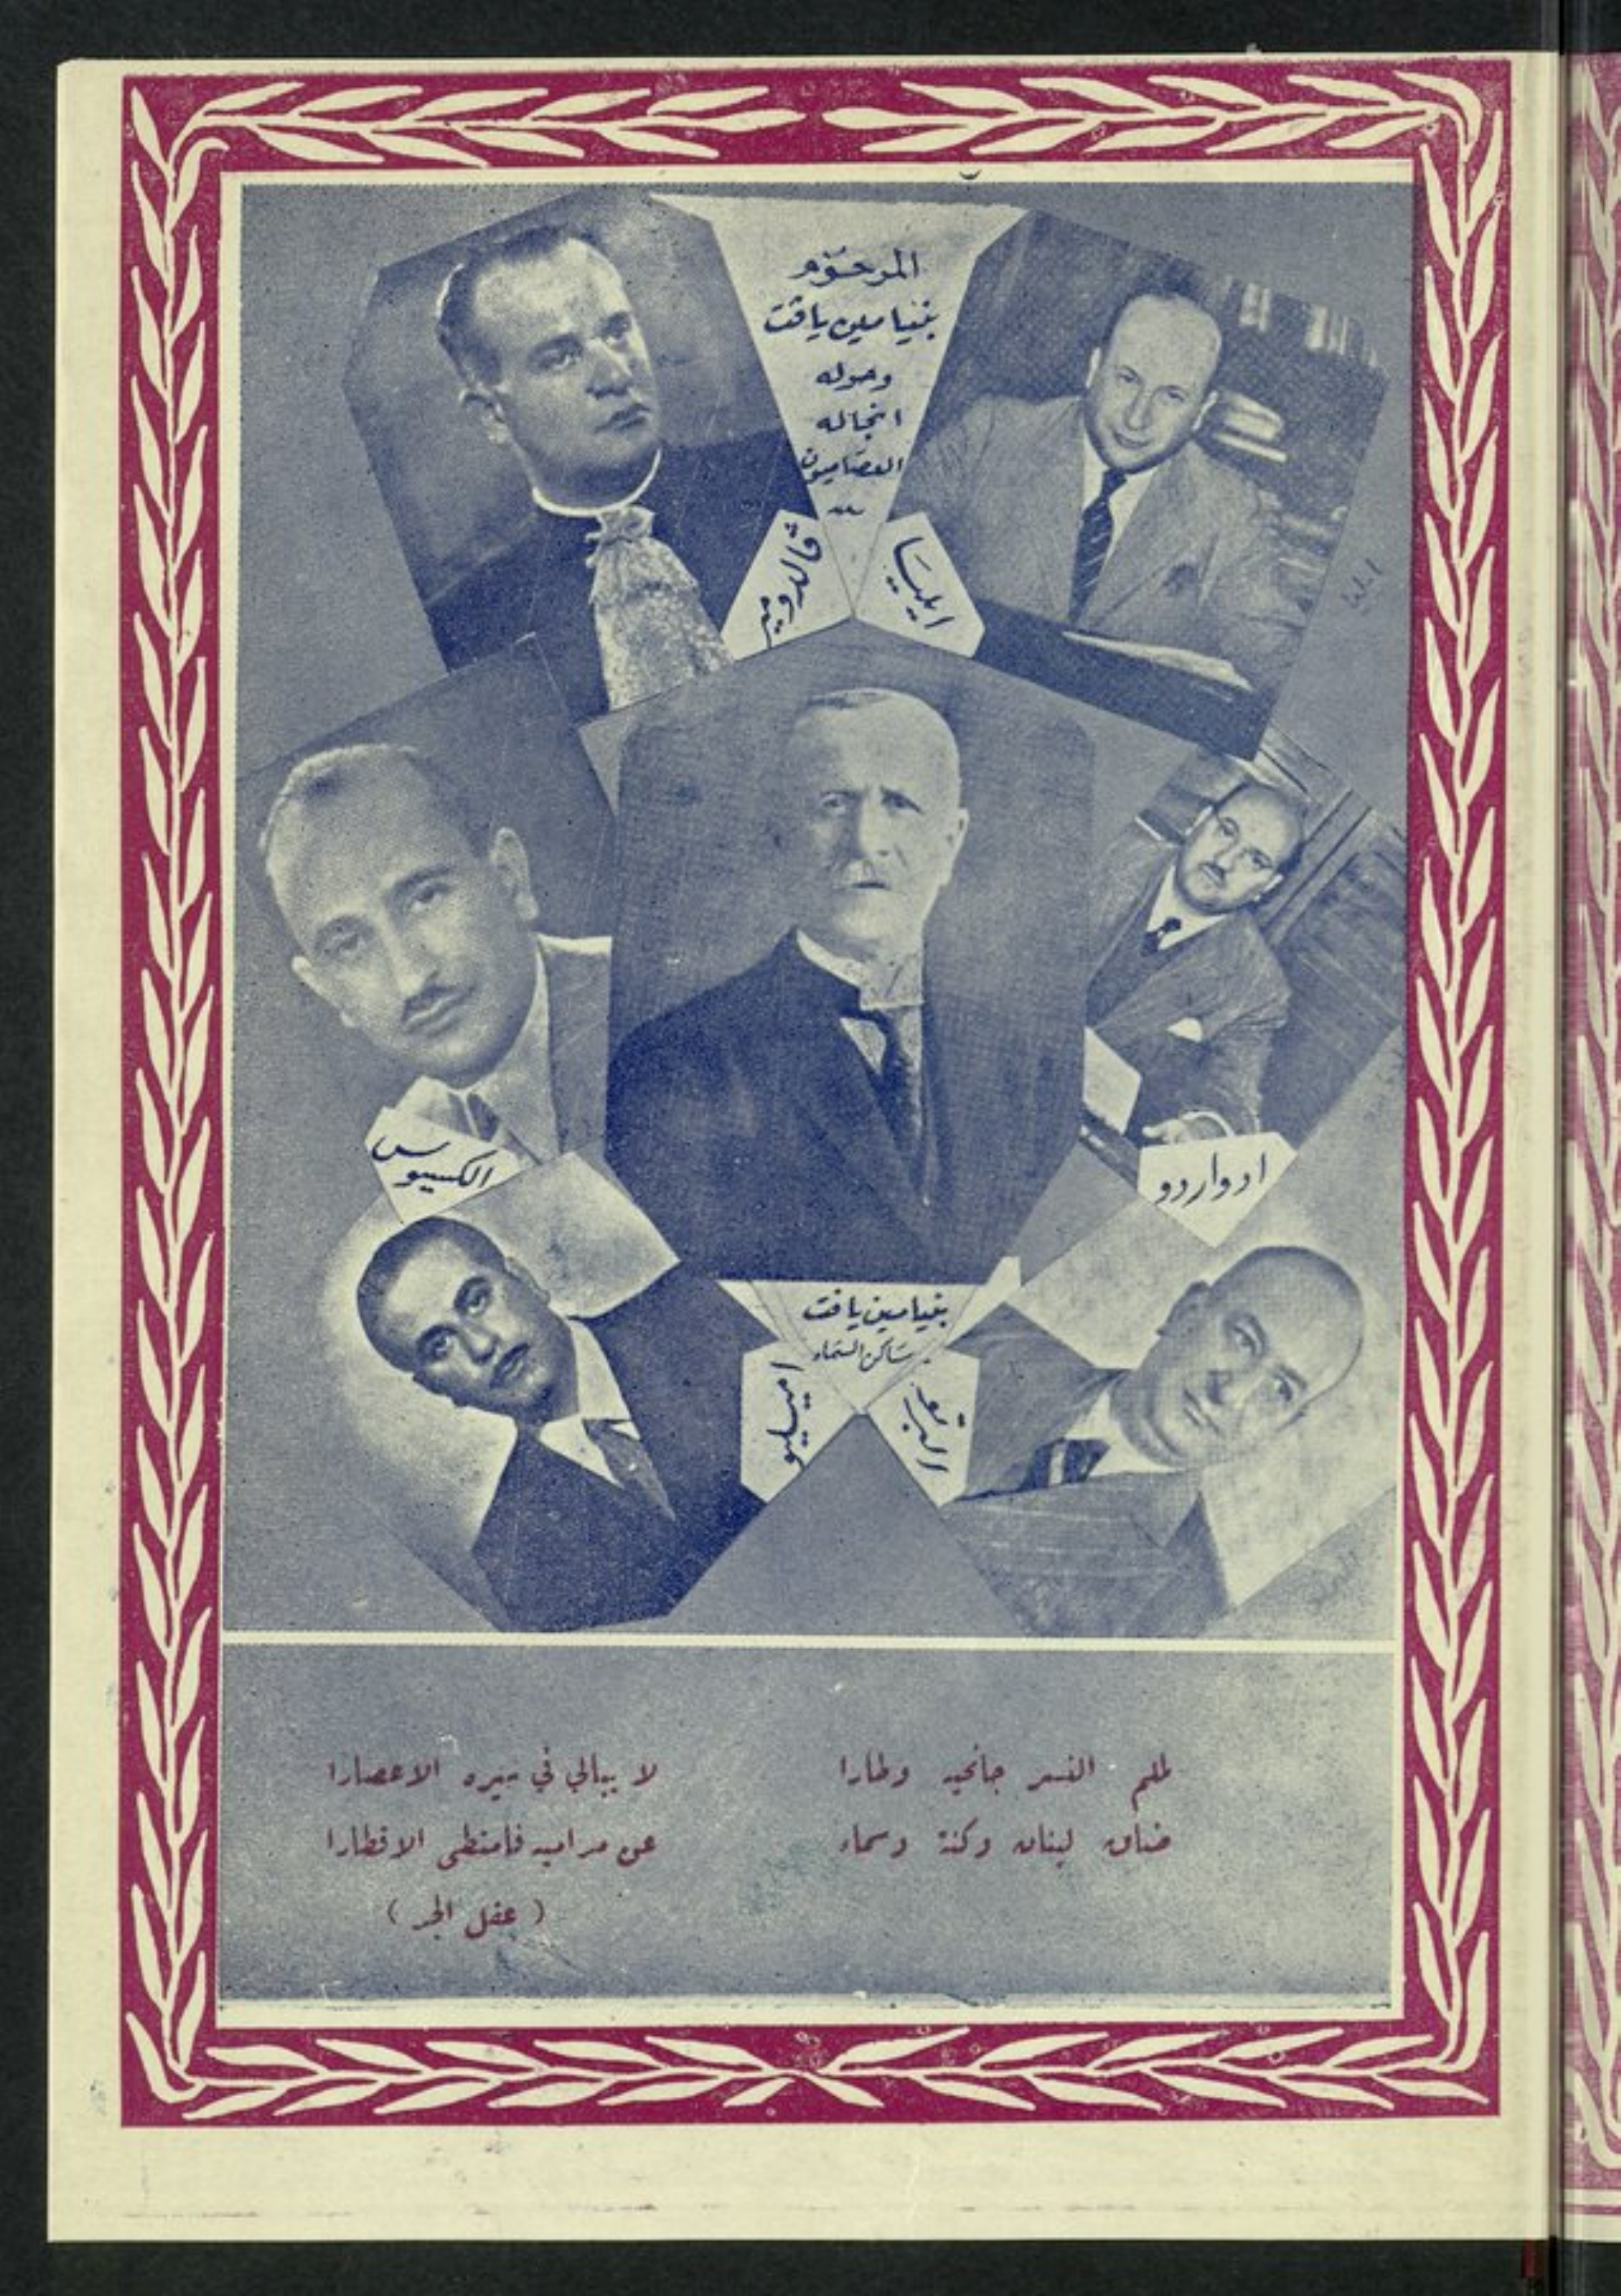 المرحوم
بنيامين يافث
وحوله
انجاله
العصاميون
ڤالدومير
ايليا
الكسيوس
ادواردو
بنيامين يافث
ساكن السماء
اميليو
البرتو
لملم النسر جانحيه وطارا لا يبالي في سيره الاعصارا
ضاق لبنان وكنة وسماء عن مراميه فامتطى الاقطارا
( عقل الجر )